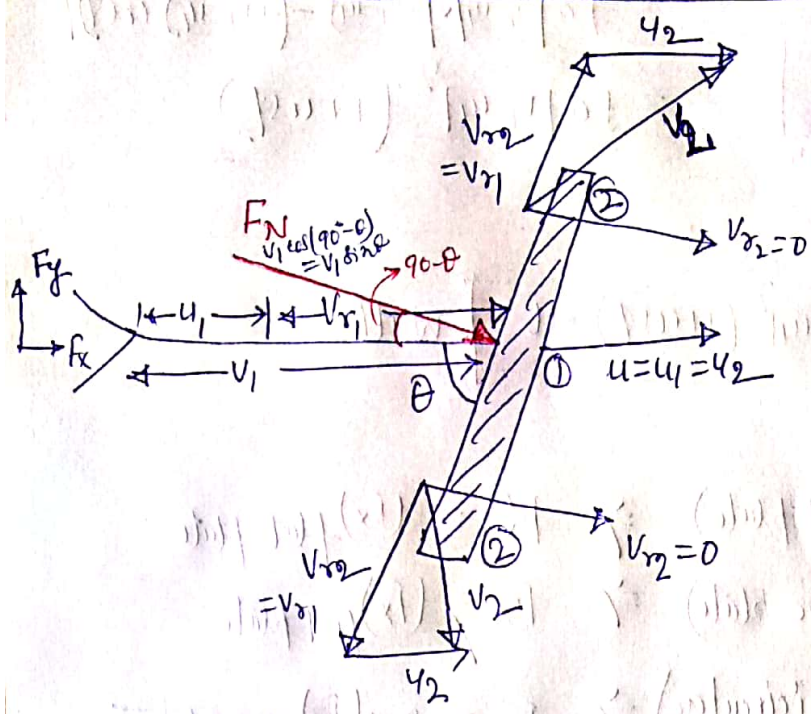 u₂
V₂
Vr₂
=Vr₁
②
Vr₂=0
F_N
V₁cos(90°-θ)
=V₁sinθ
90-θ
Fy
Fx
u₁
Vr₁
V₁
θ
①
u=u₁=u₂
②
Vr₂=0
Vr₂
=Vr₁
V₂
u₂